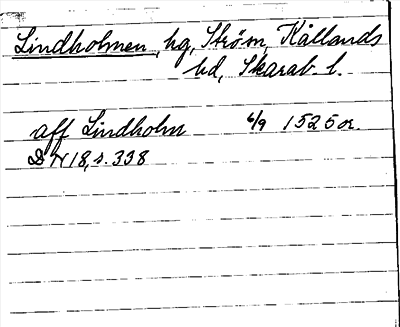 Lindholmen, hg, Strøm, Kållands
hd, Skarab. l.
aff Lindholm 6/9 1525 or.
DN 18, s. 338